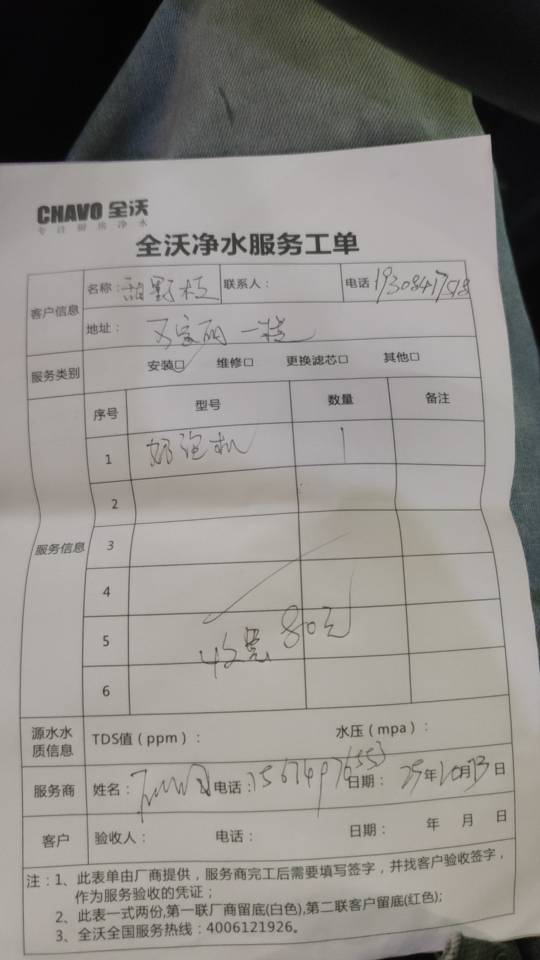 CHAVO 全沃
专注厨房净水
全沃净水服务工单
客户信息
名称： 联系人： 电话
地址： 一楼
服务类别 安装□ 维修□ 更换滤芯□ 其他□
服务信息
序号 型号 数量 备注
1 奶泡机 1
2
3
4
5
收费 80元
6
源水水质信息 TDS值（ppm）： 水压（mpa）：
服务商 姓名： 电话： 日期： 25年10月13日
客户 验收人： 电话： 日期： 年 月 日
注：1、此表单由厂商提供，服务商完工后需要填写签字，并找客户验收签字，
作为服务验收的凭证；
2、此表一式两份,第一联厂商留底(白色),第二联客户留底(红色);
3、全沃全国服务热线：4006121926。